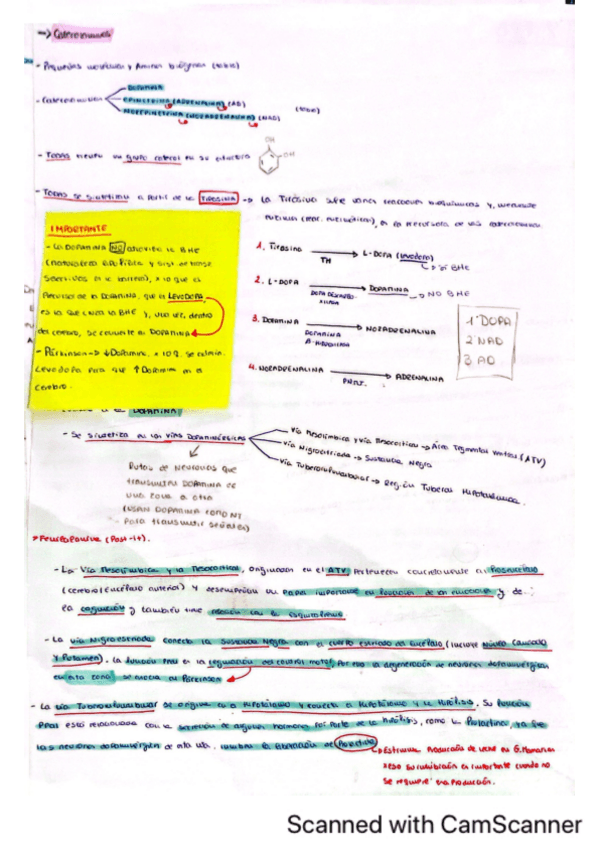 → Catecolaminas
- Pequeñas moléculas y Aminas biógenas (todas)
- Catecolaminas
DOPAMINA
EPINEFRINA (ADRENALINA) (AD)
NOREPINEFRINA (NORADRENALINA) (NAD)
(todas)
- Todas tienen un grupo catecol en su estructura
OH
OH
- Todas se sintetizan a partir de la TIROSINA → La Tirosina sufre varias reacciones bioquímicas y, mediante
es la precursora de las catecolaminas.
IMPORTANTE
- La DOPAMINA NO atraviesa la BHE
es la LEVODOPA
es la que cruza la BHE y, una vez, dentro
del cerebro, se convierte en DOPAMINA
- Párkinson → ↓ Dopamina, x lo q. se admin.
Levodopa para que ↑ Dopamina en el
cerebro.
1. Tirosina → L-DOPA (Levodopa)
TH
→ sí BHE
2. L-DOPA → DOPAMINA
→ NO BHE
3. DOPAMINA → NORADRENALINA
DOPAMINA
4. NORADRENALINA → ADRENALINA
1º DOPA
2 NAD
3 AD
DOPAMINA
- Se sintetiza en las VÍAS DOPAMINÉRGICAS
Vía Mesolímbica y Vía Mesocortical → Área Tegmental Ventral (ATV)
Vía Nigroestriada → Sustancia Negra
Vía Tuberoinfundibular → Región Tuberal Hipotalámica.
Rutas de Neuronas que
transmiten DOPAMINA de
una zona a otra
(USAN DOPAMINA COMO NT
para transmitir señales)
(Post-it).
- La Vía Mesolímbica y la Mesocortical, originadas en el ATV pertenecen concretamente al Prosencéfalo
(cerebro/Encéfalo anterior) y desempeñan un papel importante en
la cognición y también tiene relación con la Esquizofrenia
- La vía Nigroestriada conecta la Sustancia Negra con el cuerpo estriado del Encéfalo (incluye Núcleo Caudado
y Putamen). La función ppal es la regulación del control motor. Por eso la degeneración de neuronas dopaminérgicas
en esta zona se asocia al Párkinson
- La vía Tuberoinfundibular se origina en el Hipotálamo y conecta el Hipotálamo y la Hipófisis. Su función
ppal está relacionada con la secreción de algunas hormonas por parte de la Hipófisis, como la Prolactina, ya que
las neuronas dopaminérgicas de esta vía inhiben la liberación de Prolactina
→ Estimula Producción de leche en G. Mamarias
su inhibición es importante cuando no
se requiere esa producción.
Scanned with CamScanner